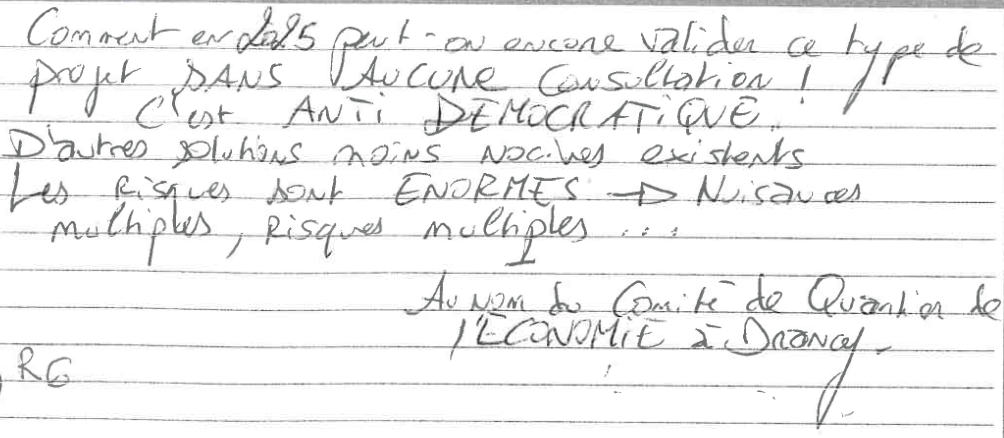 Comment en 2025 peut-on encore valider ce type de
projet SANS AUCUNE Consultation !
C'est ANTI DEMOCRATIQUE.
D'autres solutions moins nocives existents
Les Risques sont ENORMES → Nuisances
multiples, Risques multiples ...
Au nom du Comité de Quartier de
l'ECONOMIE à Drancy-
RG